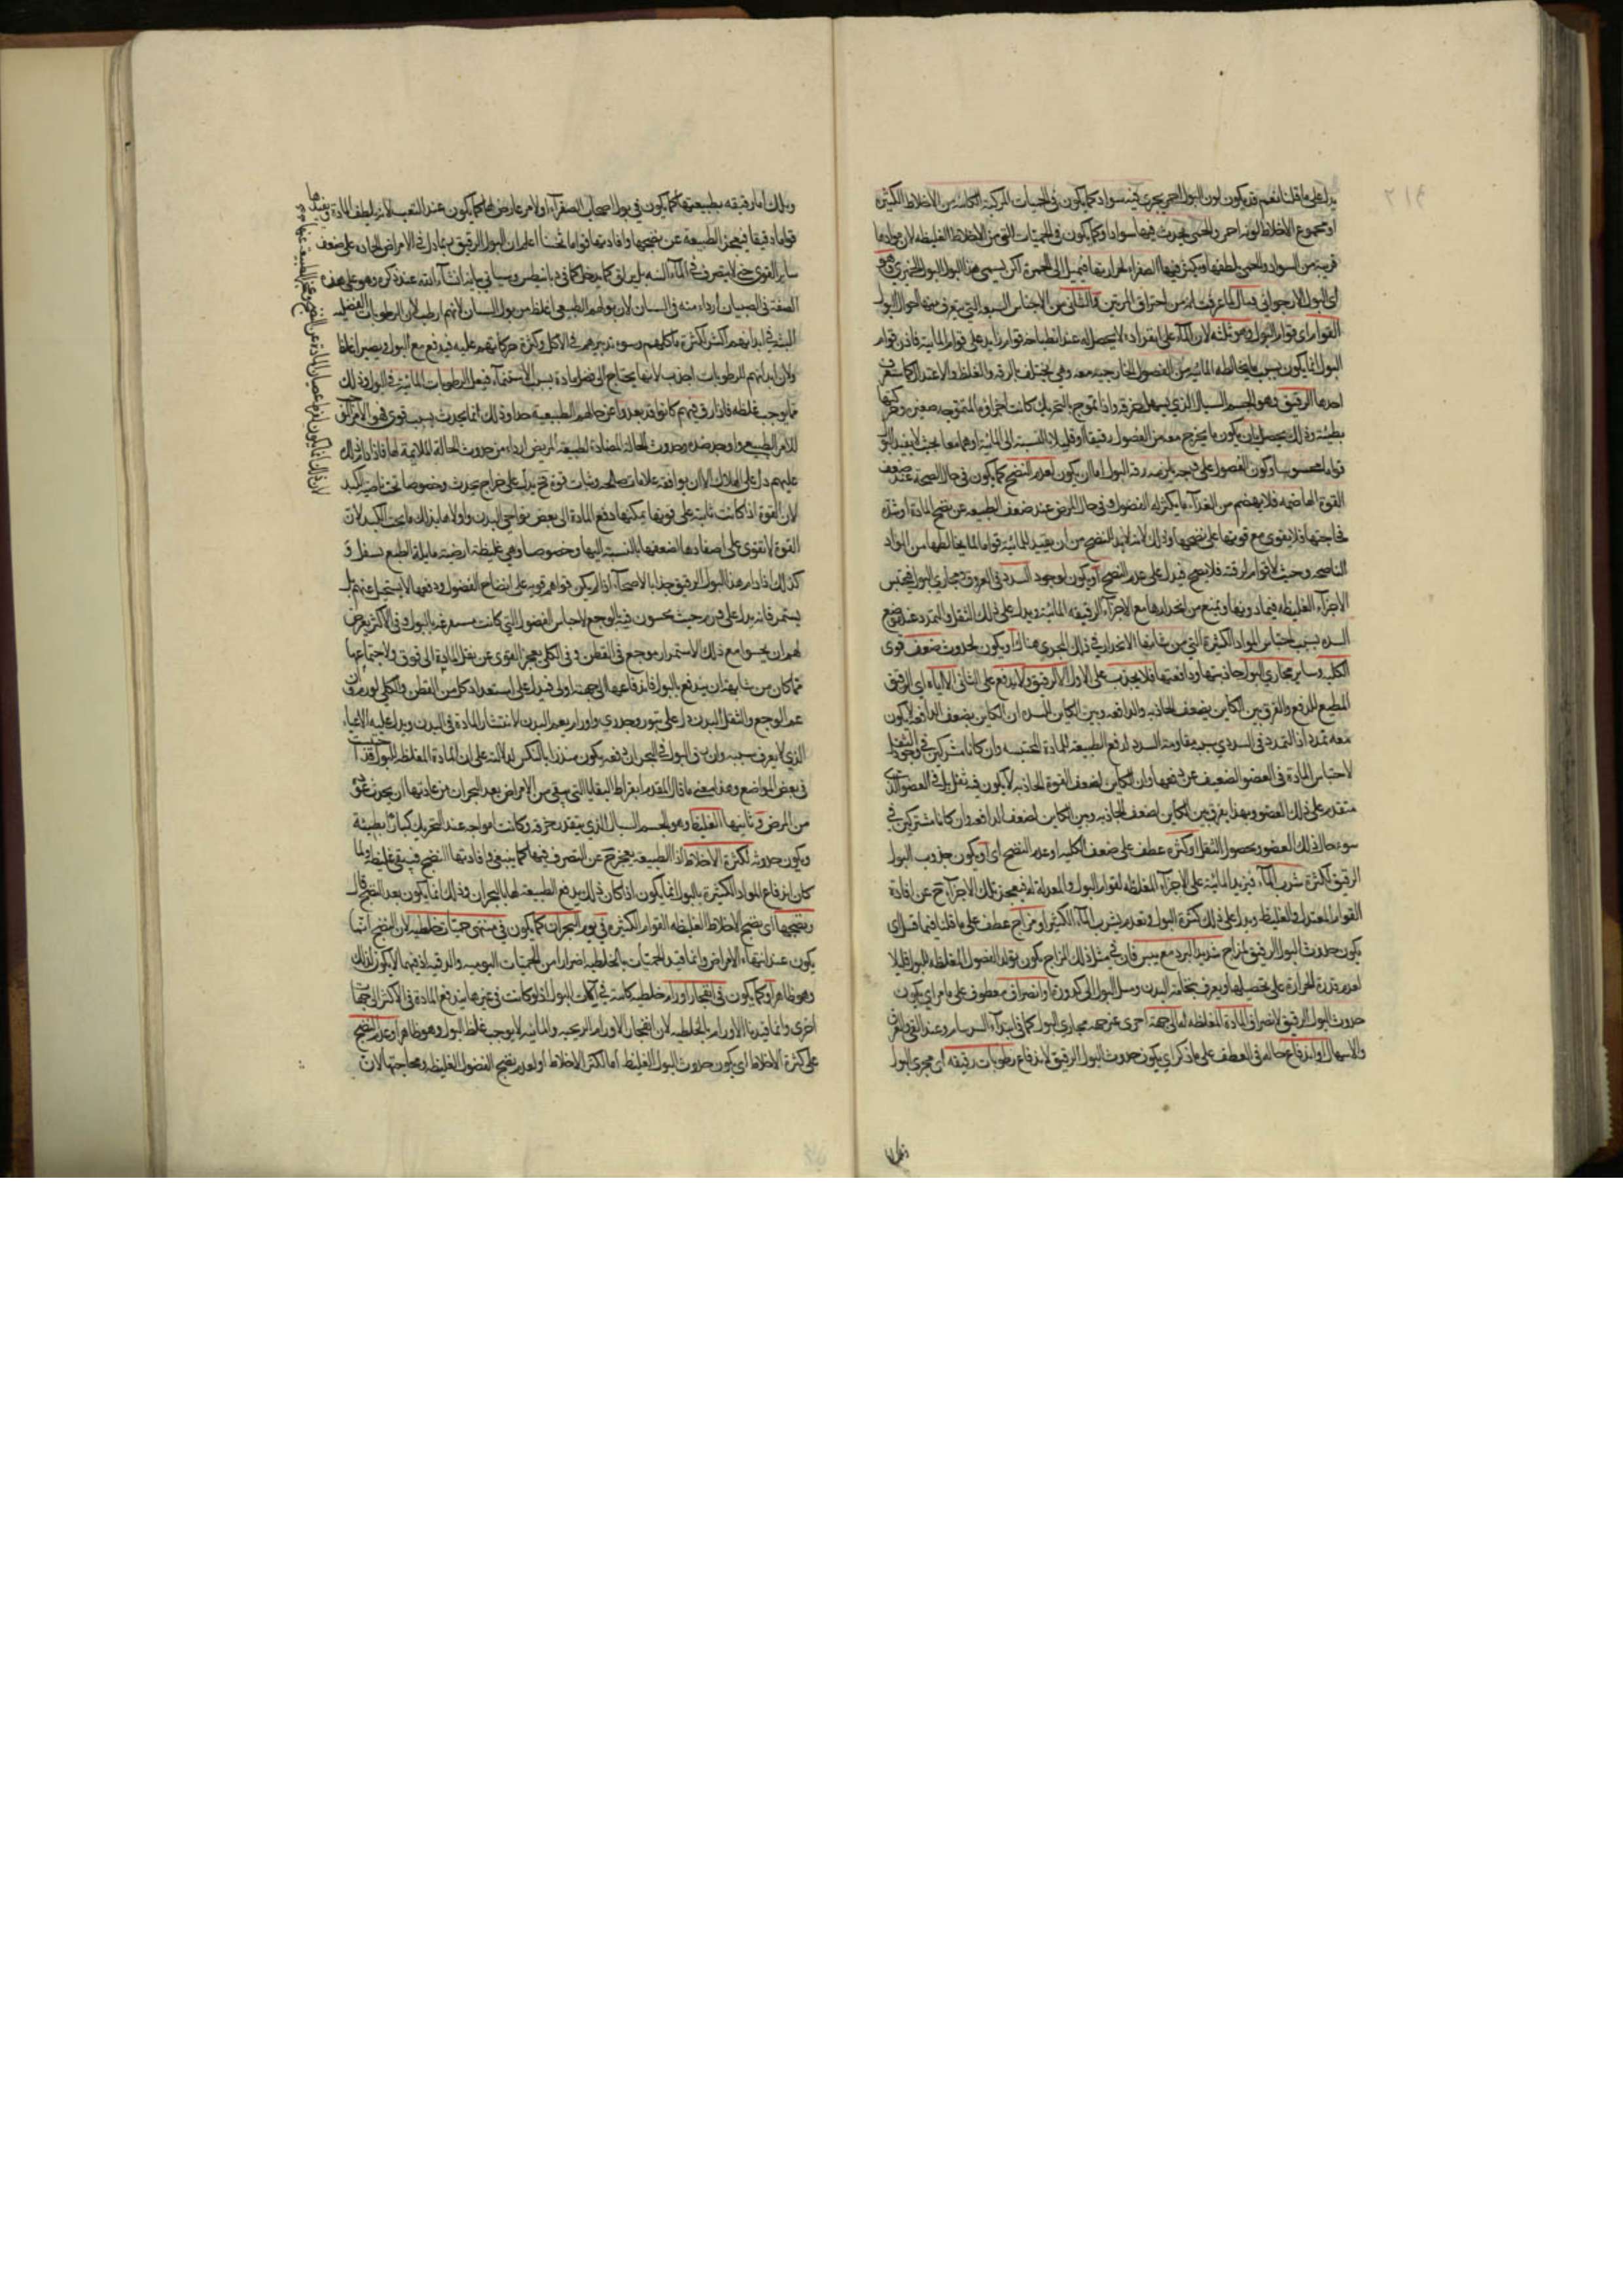 ٢١٩
يدل على ما قلنا نعم قد يكون لون البول احمر يجرى فيه سواد كما يكون فى الحميات المركبة الكائنة من الاخلاط الكثيرة
او مجموع الاخلاط لونه احمر والحمى تحدث فيها سوادا وكما يكون فى الحميات التى من الاخلاط الغليظه لان موادها
قريبة من السواد والحمى يلطفها ويكثر فيها الصفراء لحرارتها فتميل الى الحمرة
اى البول الارجوانى قتال لما عرفت انه من احتراق المرتين والثانى من الاجناس السبعة التى يتعرف منها احوال البول
القوام اى قوام البول وهو ثلثه لان الماء على انفراده لا يحصل له عند انطباخه قوام زايد على قوام المائية فاذن قوام
البول انما يكون بسبب ما يخالطه المائية من الفضول الخارجية معه وهى تختلف بالرقة والغلظ والاعتدال
احدها الرقيق وهو الجسم السيال الذى يسهل خرقه واذا تموج بالتحريك كانت اجزاؤه المتموجه صغيرة وحركتها
بطيئة وذلك يحصل بان يكون ما يخرج معه من الفضول رقيقا او قليلا بالنسبة الى المائية او هما معا بحيث لا يفيد البول
قواما محسوسا وكون الفضول على وجه يلزمه رقة البول اما ان يكون لعدم النضج كما يكون فى حال الصحة عند ضعف
القوة الهاضمه فلا يهضم من الغذاء ما يكثر له الفضول وفى حال المرض عند ضعف الطبيعه عن نضج المادة او شدة
فجاجتها فلا يقوى مع قوتها على نضجها وذلك لانه لا بد للنضج من ان يفيد للمائية قواما لما يخالطها من المواد
الناضجه وحيث لا قوام لرقته فلا نضج فيدل على عدم النضج او يكون لوجود السدد فى العروق ومجارى البول فيحتبس
الاجزاء الغليظه فيما دونها ويمنع من انحدارها مع الاجزاء الرقيقه المائية ويدل على ذلك الثقل والتمدد عند موضع
السده بسبب احتباس المواد الكثيرة التى من شانها الانحدار فى ذلك المجرى هناك او يكون لحدوث ضعف قوى
الكليه وساير مجارى البول جاذبتها ودافعتها فلا يجذب على الاول الا الرقيق ولا يدفع على الثانى الا اياه اى الرقيق
المطيع للدفع والفرق بين الكاين بضعف الجاذبه والدافعه وبين الكاين للسده ان الكاين بضعف الدافعه لا يكون
معه تمدد اذ التمدد فى السددى سببه مقاومة السدد لدفع الطبيعه للمادة المحتبسه وان كانا مشتركين فى وجود الثقل
لاحتباس المادة فى العضو الضعيف عن دفعها وان الكاين لضعف القوة الجاذبه لا يكون فيه ثقل بل فى العضو الذى
متقدم على ذلك العضو وبهذا يفرق بين الكاين لضعف الجاذبه وبين الكاين لضعف الدافعه وان كانا مشتركين فى
سوء حال ذلك العضو وحصول الثقل او كثرة عطف على ضعف الكليه او عدم النضج اى او يكون حدوث البول
الرقيق لكثرة شرب الماء فيزيد المائية على الاجزاء المغلظه لقوام البول والمعدلة له فيعجز تلك الاجزاء ح عن افادة
القوام المعتدل والغليظ ويدل على ذلك كثرة البول وتقدم شرب الماء الكثير او مزاج عطف على ما قلنا فيما قبل اى
يكون حدوث البول الرقيق لمزاج شديد البرد مع يبس فان فى مثل ذلك المزاج يكون تولد الفضول المغلظه للبول قليلا
لعدم قدرة الحرارة على تحصيلها
حدوث البول الرقيق لانصراف المادة المغلظه له الى جهة اخرى غير جهه مجارى البول كما فى ابتداء السرسام وعند القى
والاسهال او اندفاع حاله فى العطف على ما ذكر اى يكون حدوث البول الرقيق لاندفاع رطوبات رقيقه الى مجرى البول
وتلك اما رقيقه بطبيعتها كما يكون فى بول اصحاب الصفراء او لامر عارض لها كما يكون عند التعب لانه يلطف المادة
قواما دقيقا فيعجز الطبيعة عن نضجها وافادتها قواما ثخينا اعلم ان البول الرقيق يدل فى الامراض الحاده على ضعف
ساير القوى حتى لا يتصرف فى الماء البته بل يزلق كما يدخل كما فى ديابيطس وسياتى بيانه انشاء الله عند ذكره وهو على هذه
الصفة فى الصبيان اردا منه فى الشبان لان بولهم الطبيعى اغلظ من بول الشبان لانهم ارطب لان الرطوبات الفضليه
البثه فى ابدانهم اكثر لكثرة ماكلهم وسوء تدبيرهم فى الاكل وكثرة حركاتهم عليه فيندفع مع البول ويصير اغلظ
ولان ابدانهم للرطوبات اجذب لانها يحتاج الى فضل مادة بسبب الاستنماء فيقل الرطوبات المائية فى البول وذلك
مما يوجب غلظه فاذا رق فيهم كانوا قد بعدوا عن حالهم الطبيعيه جدا وذلك انما يحدث بسبب قوى
عليهم دل على الهلاك الا ان يوافقه علامات صالحه وثبات قوة فح يدل على خراج يحدث وخصوصا تحت ناحيه الكبد
لان القوة اذا كانت ثابتة على قوتها يمكنها دفع المادة الى بعض نواحى البدن واولاها بذلك ما تحت الكبد لان
القوة لا تقوى على اصعادها لضعفها بالنسبة اليها وخصوصا وهى غليظة ارضية مايلة بالطبع
كذلك اذا دام هذا البول الرقيق جدا بالاصحاء اذا لم يكن قواهم قويه على انضاج الفضول ودفعها
يستمر فانه يدل على ورم حيث يحسون فيه الوجع لاحتباس الفضول التى كانت مستفرغه بالبول وفى الاكثر يعرض
لهم ان يحسوا مع ذلك الاستمرار بوجع فى القطن وفى الكلى
مما كان من شانه ان يندفع بالبول فاندفاعها الى جهته اولى فيدل على استعداد كل من القطن والكلى لورم
عم الوجع والثقل البدن دل على بثور وجدرى واورام يعم البدن لانتشار المادة فى البدن ويدل عليه الاعياء
الذى لا يعرف سببه وان رق البول فى البحران دفعه يكون منذرا بالنكس لدلالته على ان المادة المغلظه للبول قد احتبست
فى بعض المواضع وهذا معنى ما قال المقدم ابقراط البقايا التى يبقى من الامراض بعد البحران من عادتها ان يحدث
من المرض وثانيها الغليظ وهو الجسم السيال الذى يتعذر خرقه وكانت امواجه عند التحريك كبارا بطيئة
ويكون حدوثه لكثرة الاخلاط اذ الطبيعه يعجز ح عن التصرف فيها كما ينبغى وافادتها النضج فيبقى غليظا ولما
كان اندفاع المواد الكثيرة بالبول انما يكون اذا كان ذلك بدفع الطبيعه لها بالبحران وذلك انما يكون بعد النضج قال
ونضجها اى نضج الاخلاط الغليظه القوام الكثيرة فى يوم البحران كما يكون فى منتهى حميات خلطيه لان النضج انما
يكون عند انتهاء الامراض وانما قيد الحميات بالخلطيه احترازا من الحميات اليوميه والدقيه اذ فيهما لا يكون كذلك
وهو ظاهر او كما يكون فى انفجار اورام خلطيه كاينة فى آلات البول اذ لو كانت فى غيرها يندفع المادة فى الاكثر الى جهة
اخرى وانما قيدنا الاورام بالخلطيه لان انفجار الاورام الريحيه والمائيه لا يوجب غلظ البول وهو ظاهر او عدم النضج
على كثرة الاخلاط اى يكون حدوث البول الغليظ اما لكثرة الاخلاط او لعدم نضج الفضول الغليظه وفجاجتها لان